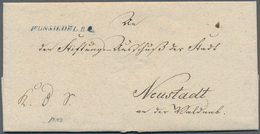 WUNSIEDEL
An
den Stiftungs-Ausschuß der Stadt
Neustadt
an der Waldnab.